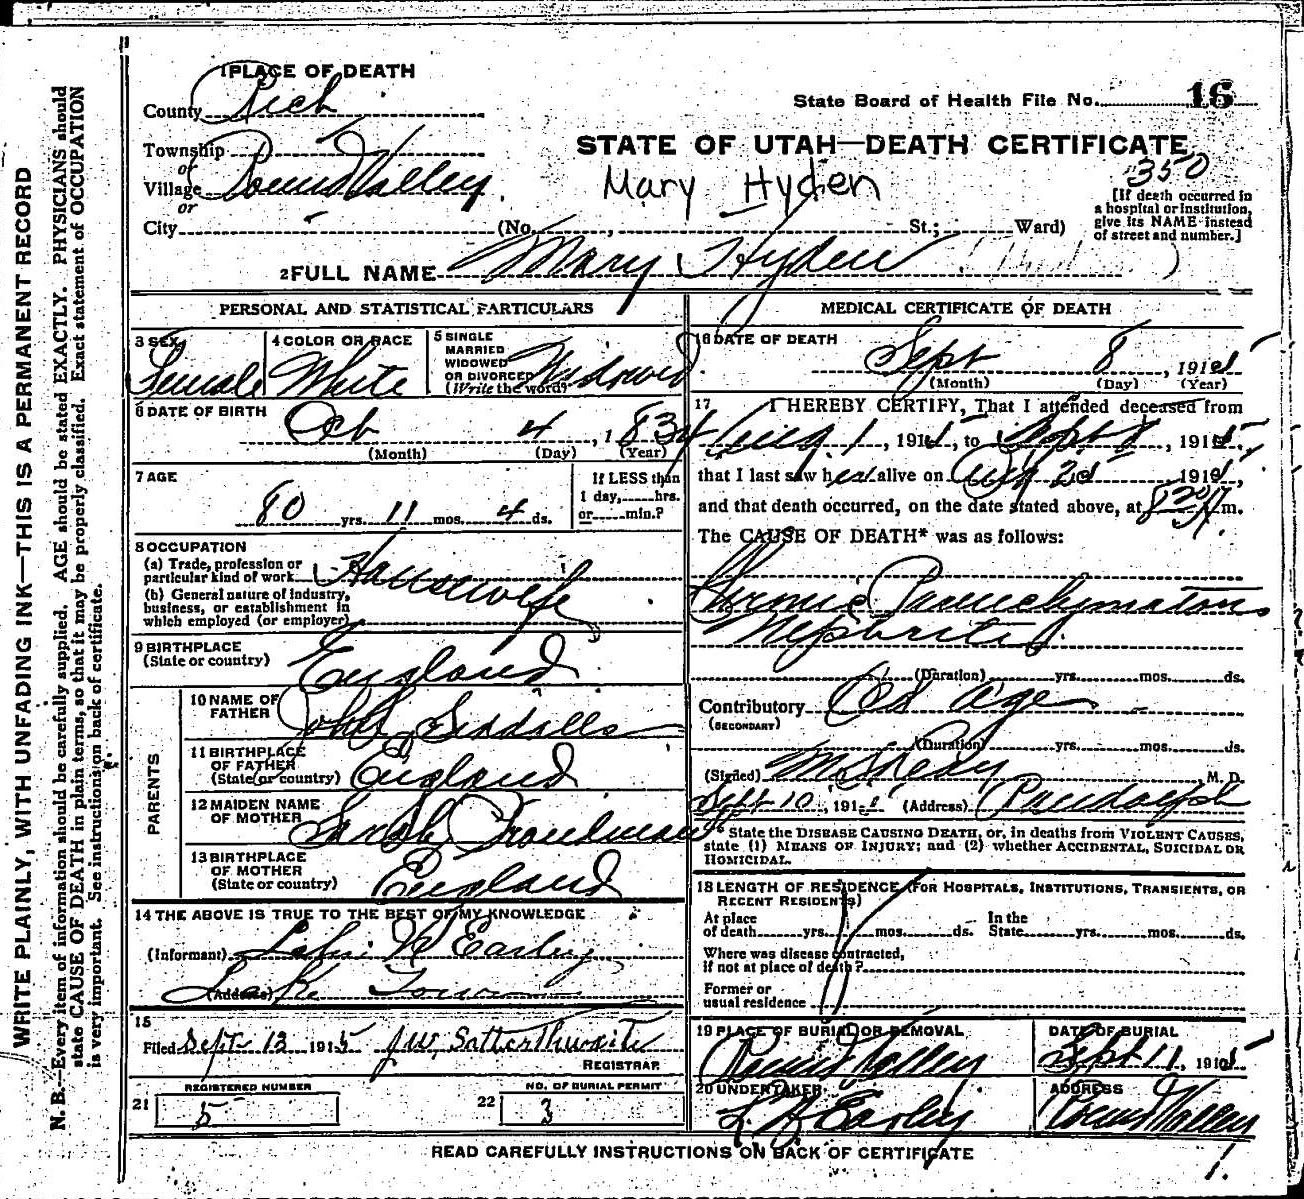 1 PLACE OF DEATH
County Rich
State Board of Health File No. 16
Township
or
Village Round Valley
or
City
STATE OF UTAH—DEATH CERTIFICATE
350
Mary Hyden
[If death occurred in
a hospital or institution,
give its NAME instead
of street and number.]
(No. , St.; Ward)
2 FULL NAME Mary Hyden
PERSONAL AND STATISTICAL PARTICULARS
3 SEX
Female
4 COLOR OR RACE
White
5 SINGLE
MARRIED
WIDOWED
OR DIVORCED
(Write the word)
Widowed
6 DATE OF BIRTH
Oct 4, 1834
(Month) (Day) (Year)
7 AGE
80 yrs. 11 mos. 4 ds.
If LESS than
1 day, hrs.
or min.?
8 OCCUPATION
(a) Trade, profession or
particular kind of work Housewife
(b) General nature of industry,
business, or establishment in
which employed (or employer)
9 BIRTHPLACE
(State or country)
England
PARENTS
10 NAME OF
FATHER
John Siddalls
11 BIRTHPLACE
OF FATHER
(State or country)
England
12 MAIDEN NAME
OF MOTHER
Sarah Troulman
13 BIRTHPLACE
OF MOTHER
(State or country)
England
14 THE ABOVE IS TRUE TO THE BEST OF MY KNOWLEDGE
(Informant) Earley
(Address) Lake Town
15
Filed Sept 13 1915 J W Satterthwaite
REGISTRAR
REGISTERED NUMBER
21 5
NO. OF BURIAL PERMIT
22 3
MEDICAL CERTIFICATE OF DEATH
16 DATE OF DEATH
Sept 8, 1915
(Month) (Day) (Year)
17 I HEREBY CERTIFY, That I attended deceased from
Aug. 1, 1915, to Sept 8, 1915,
that I last saw her alive on 1915,
and that death occurred, on the date stated above, at 8 30 P m.
The CAUSE OF DEATH* was as follows:
Chronic Parenchymatous
Nephritis
(Duration) yrs. mos. ds.
Contributory Old Age
(SECONDARY)
(Duration) yrs. mos. ds.
(Signed) , M. D.
Sept 10, 1915 (Address) Randolph
* State the DISEASE CAUSING DEATH, or, in deaths from VIOLENT CAUSES,
state (1) MEANS OF INJURY; and (2) whether ACCIDENTAL, SUICIDAL OR
HOMICIDAL.
18 LENGTH OF RESIDENCE (FOR HOSPITALS, INSTITUTIONS, TRANSIENTS, OR
RECENT RESIDENTS)
At place
of death yrs. mos. ds.
In the
State yrs. mos. ds.
Where was disease contracted,
if not at place of death?
Former or
usual residence
19 PLACE OF BURIAL OR REMOVAL
Round Valley
DATE OF BURIAL
Sept 11, 1915
20 UNDERTAKER
Earley
ADDRESS
Round Valley
1.
READ CAREFULLY INSTRUCTIONS ON BACK OF CERTIFICATE
WRITE PLAINLY, WITH UNFADING INK—THIS IS A PERMANENT RECORD
N. B.—Every item of information should be carefully supplied. AGE should be stated EXACTLY. PHYSICIANS should
state CAUSE OF DEATH in plain terms, so that it may be properly classified. Exact statement of OCCUPATION
is very important. See instructions on back of certificate.